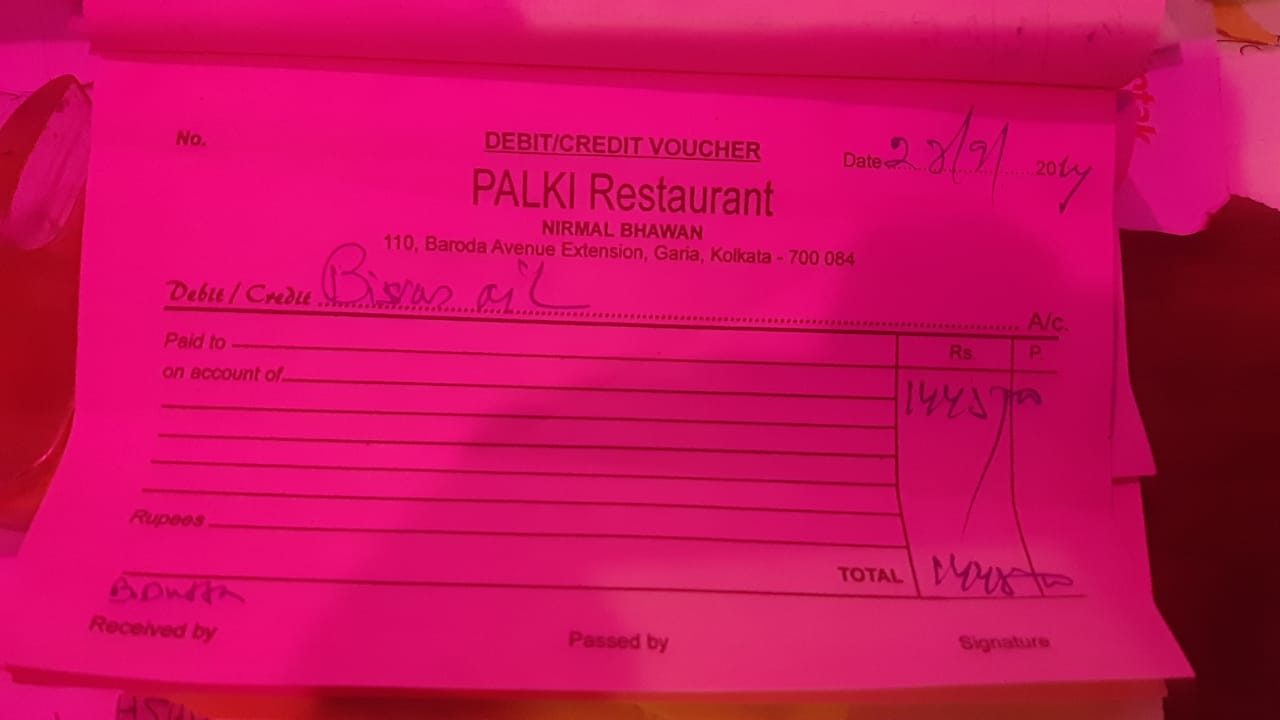 No.
DEBIT/CREDIT VOUCHER
Date 2019
PALKI Restaurant
NIRMAL BHAWAN
110, Baroda Avenue Extension, Garia, Kolkata - 700 084
Debit / Credit A/c.
Paid to Rs. P.
on account of
1445
Rupees
TOTAL
Received by Passed by Signature